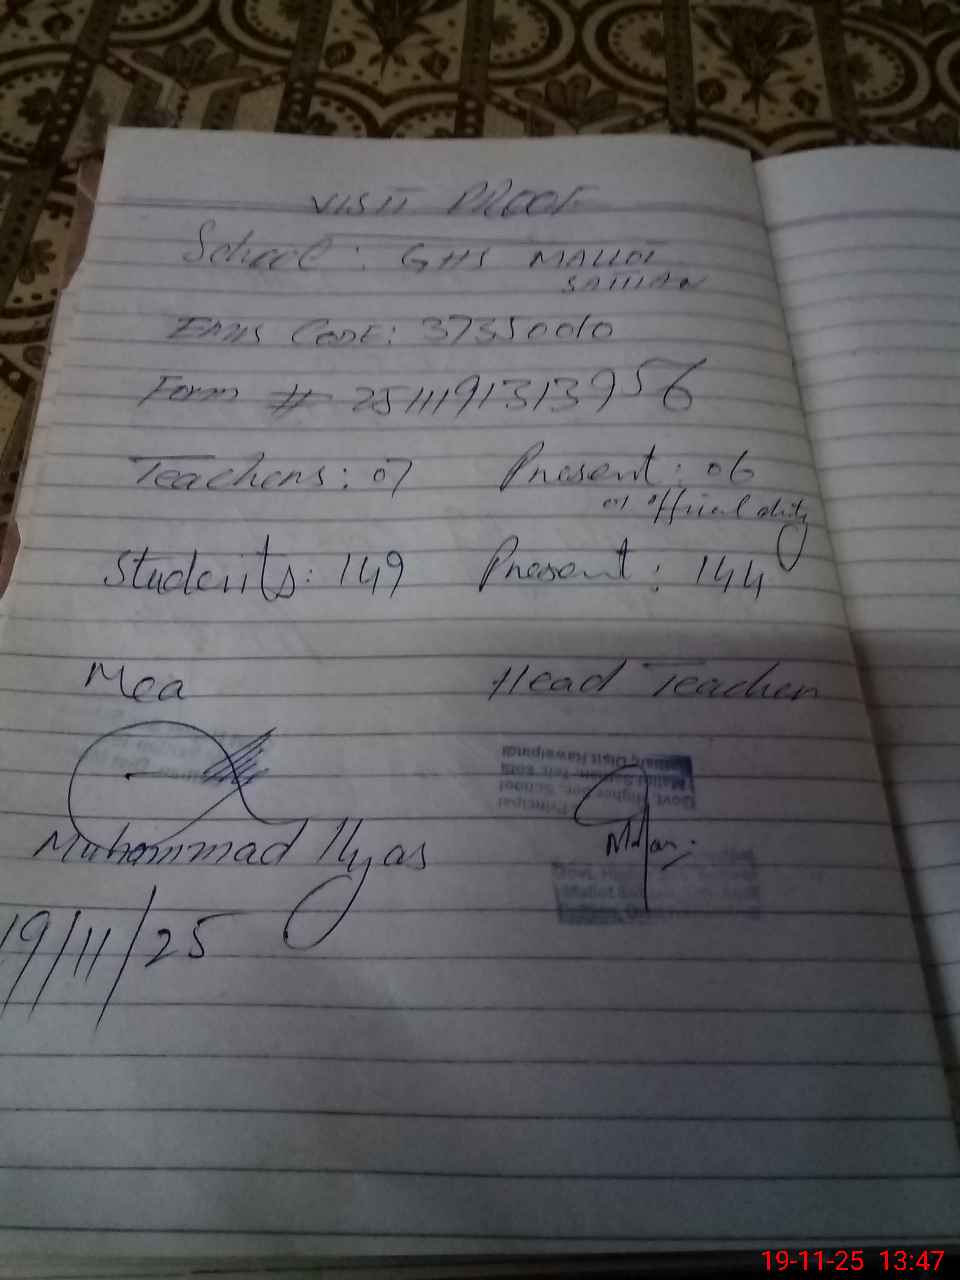 VISIT PROOF
School: GHS MALLOT
SATTIAN
EMIS Code: 37350010
Form # 2511191313956
Teachers: 07 Present: 06
01 official duty
Students: 149 Present: 144
Mea Head Teacher
Principal
Govt. Higher Sec. School
Mallot Sattian, Teh. Kotli
Sattian Distt Rawalpindi
Muhammad Ilyas
19/11/25
19-11-25 13:47